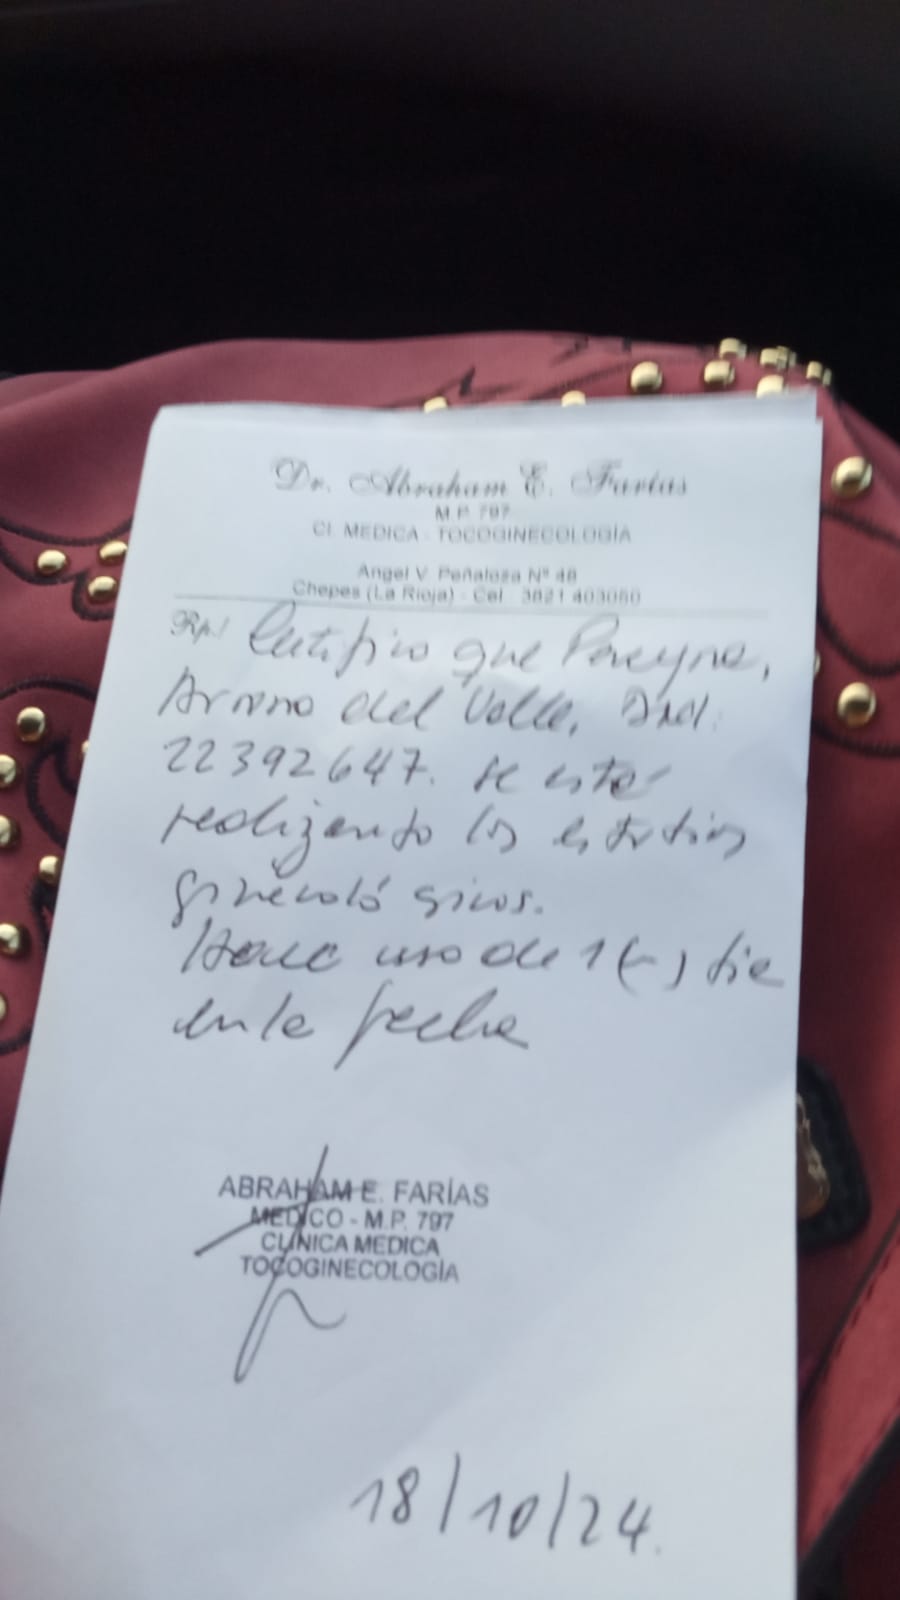 Dr. Abraham E. Farías
M.P. 797
Cl. MEDICA - TOCOGINECOLOGÍA
Angel V. Peñaloza Nº 48
Chepes (La Rioja) - Cel. 3821 403050
Rp/ Certifico que Pereyra,
del Valle, Dni.
22392647. se esta
realizando los estudios
ginecológicos.
Hace uso de 1 (-) dia
en la fecha
ABRAHAM E. FARÍAS
MEDICO - M.P. 797
CLÍNICA MEDICA
TOCOGINECOLOGÍA
18/10/24.